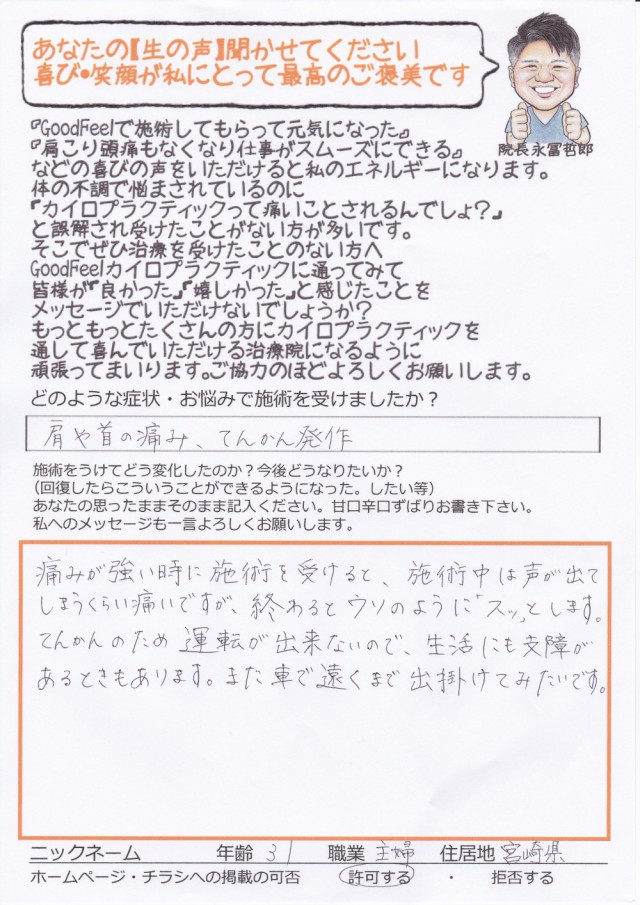 あなたの【生の声】聞かせてください
喜び・笑顔が私にとって最高のご褒美です
院長 永冨哲郎
『GoodFeelで施術してもらって元気になった』
『肩こり頭痛もなくなり仕事がスムーズにできる』
などの喜びの声をいただけると私のエネルギーになります。
体の不調で悩まされているのに
「カイロプラクティックって痛いことされるんでしょ？」
と誤解され受けたことがない方が多いです。
そこでぜひ治療を受けたことのない方へ
GoodFeelカイロプラクティックに通ってみて
皆様が「良かった」「嬉しかった」と感じたことを
メッセージでいただけないでしょうか？
もっともっとたくさんの方にカイロプラクティックを
通して喜んでいただける治療院になるように
頑張ってまいります。ご協力のほどよろしくお願いします。
どのような症状・お悩みで施術を受けましたか？
肩や首の痛み、てんかん発作
施術をうけてどう変化したのか？今後どうなりたいか？
（回復したらこういうことができるようになった。したい等）
あなたの思ったままそのまま記入ください。甘口辛口ずばりお書き下さい。
私へのメッセージも一言よろしくお願いします。
痛みが強い時に施術を受けると、施術中は声が出て
しまうくらい痛いですが、終わるとウソのように「スッ」とします。
てんかんのため運転が出来ないので、生活にも支障が
あるときもあります。また車で遠くまで出掛けてみたいです。
ニックネーム 年齢 31 職業 主婦 住居地 宮崎県
ホームページ・チラシへの掲載の可否 許可する ・ 拒否する